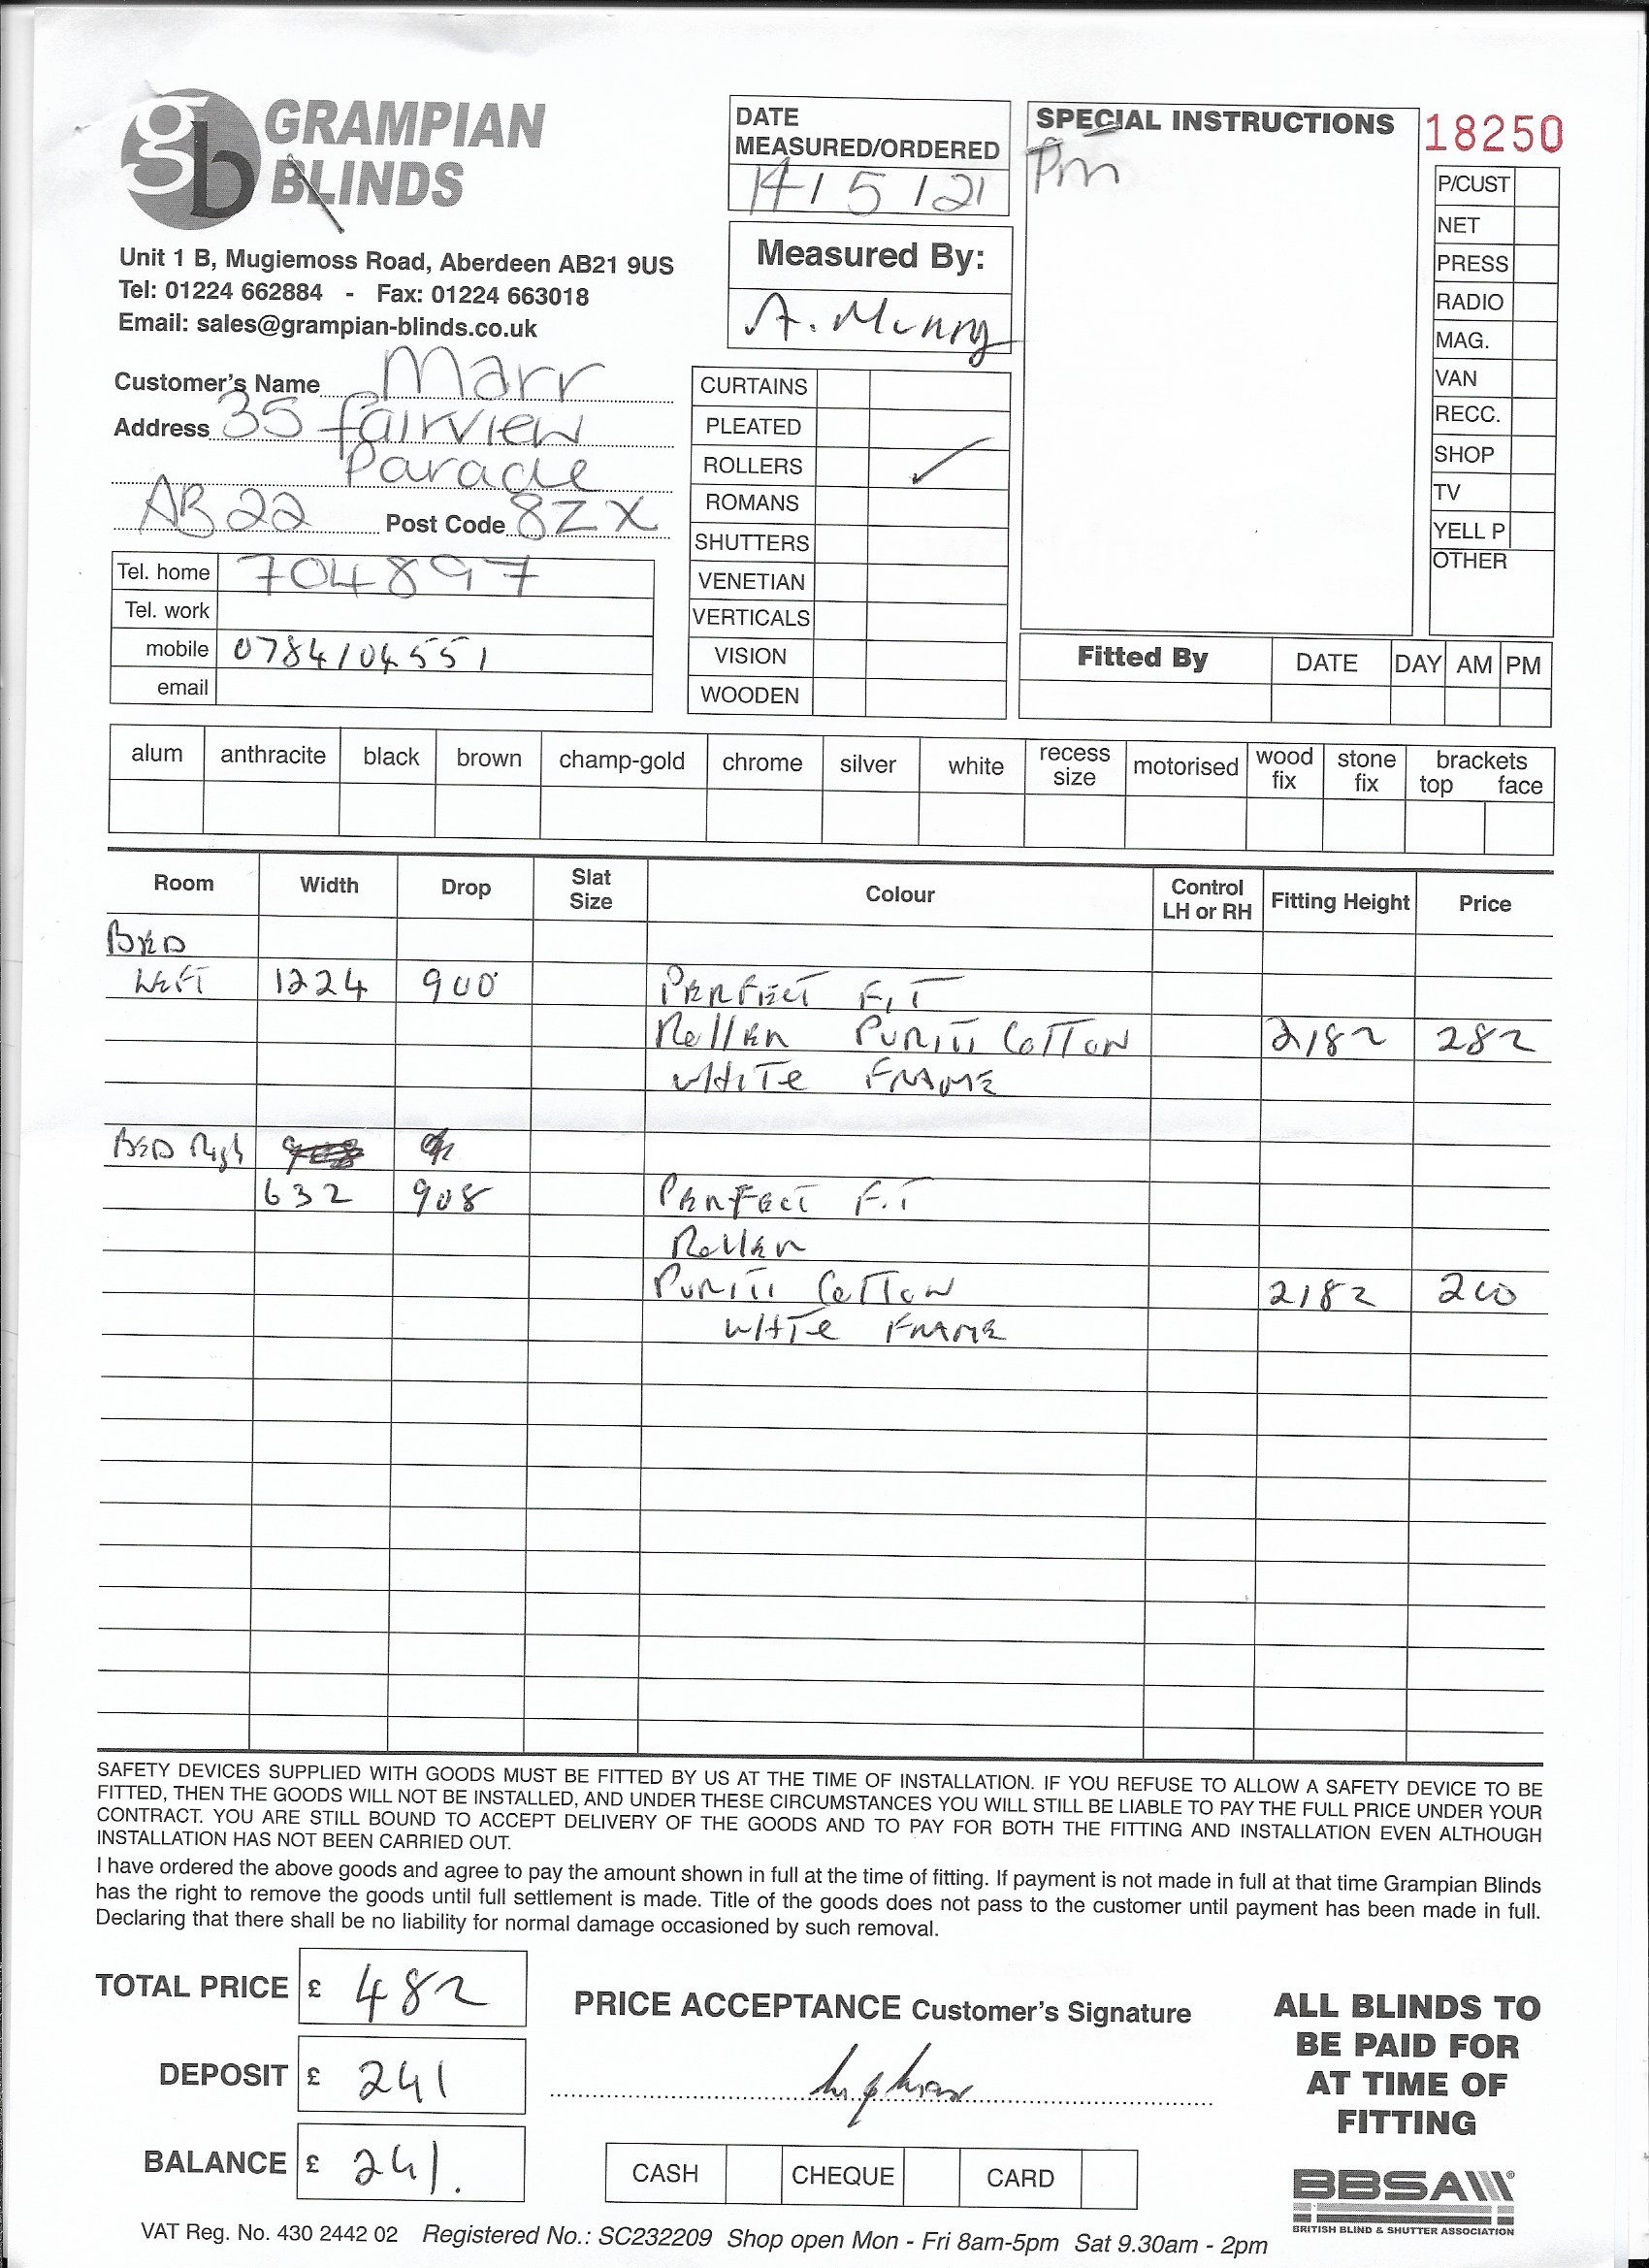 gb GRAMPIAN
BLINDS
Unit 1 B, Mugiemoss Road, Aberdeen AB21 9US
Tel: 01224 662884 - Fax: 01224 663018
Email: sales@grampian-blinds.co.uk
DATE
MEASURED/ORDERED
14/5/21
Measured By:
A. Munro
SPECIAL INSTRUCTIONS
Pm
18250
P/CUST
NET
PRESS
RADIO
MAG.
VAN
RECC.
SHOP
TV
YELL P
OTHER
Customer's Name Marr
Address 35 Fairview
Parade
AB22 Post Code 8ZX
Tel. home 704897
Tel. work
mobile 0784104551
email
CURTAINS
PLEATED
ROLLERS ✓
ROMANS
SHUTTERS
VENETIAN
VERTICALS
VISION
WOODEN
Fitted By DATE DAY AM PM
alum anthracite black brown champ-gold chrome silver white recess size motorised wood fix stone fix brackets top face
Room Width Drop Slat Size Colour Control LH or RH Fitting Height Price
BED
LEFT 1224 900 PERFECT FIT
Roller PURITI COTTON 2182 282
WHITE FRAME
BED Righ
632 908 PERFECT FIT
Roller
PURITI COTTON 2182 200
WHITE FRAME
SAFETY DEVICES SUPPLIED WITH GOODS MUST BE FITTED BY US AT THE TIME OF INSTALLATION. IF YOU REFUSE TO ALLOW A SAFETY DEVICE TO BE
FITTED, THEN THE GOODS WILL NOT BE INSTALLED, AND UNDER THESE CIRCUMSTANCES YOU WILL STILL BE LIABLE TO PAY THE FULL PRICE UNDER YOUR
CONTRACT. YOU ARE STILL BOUND TO ACCEPT DELIVERY OF THE GOODS AND TO PAY FOR BOTH THE FITTING AND INSTALLATION EVEN ALTHOUGH
INSTALLATION HAS NOT BEEN CARRIED OUT.
I have ordered the above goods and agree to pay the amount shown in full at the time of fitting. If payment is not made in full at that time Grampian Blinds
has the right to remove the goods until full settlement is made. Title of the goods does not pass to the customer until payment has been made in full.
Declaring that there shall be no liability for normal damage occasioned by such removal.
TOTAL PRICE £ 482
DEPOSIT £ 241
BALANCE £ 241.
PRICE ACCEPTANCE Customer's Signature
CASH CHEQUE CARD
ALL BLINDS TO
BE PAID FOR
AT TIME OF
FITTING
BBSA®
BRITISH BLIND & SHUTTER ASSOCIATION
VAT Reg. No. 430 2442 02 Registered No.: SC232209 Shop open Mon - Fri 8am-5pm Sat 9.30am - 2pm